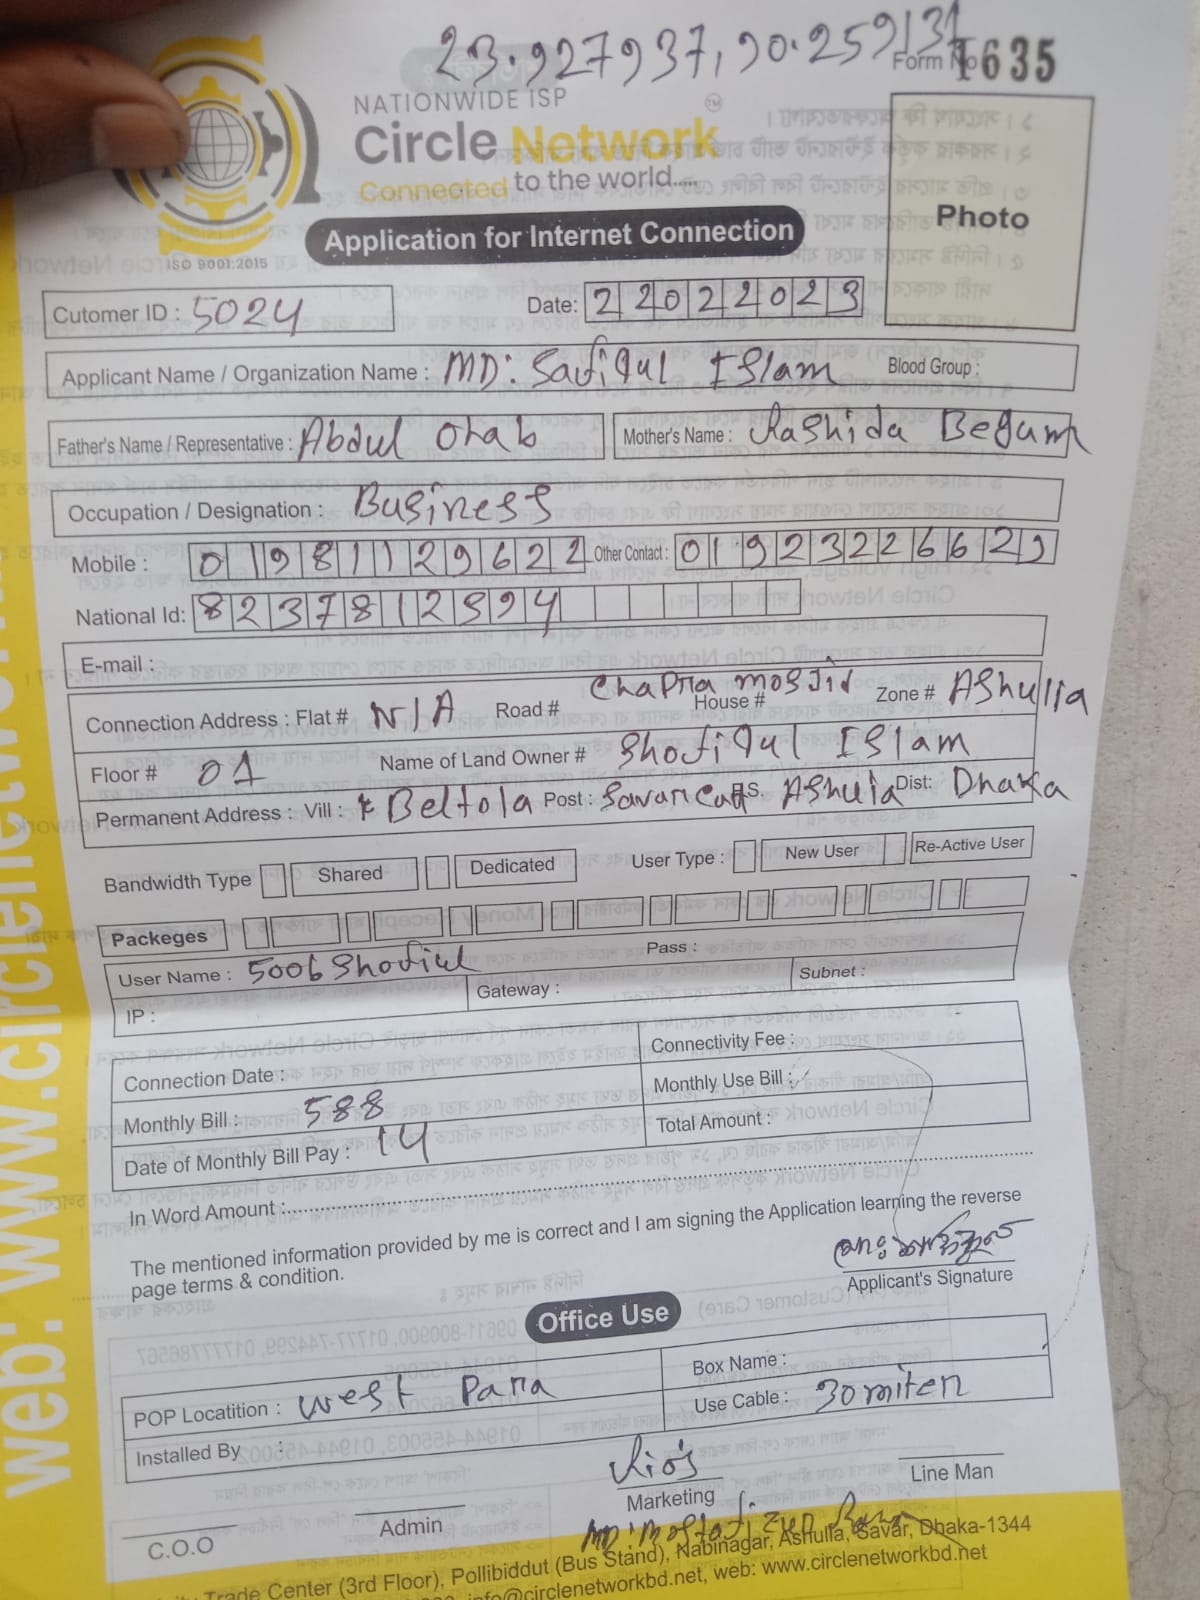 23.927937, 90.259131
Form No 1635
NATIONWIDE ISP
Circle Network
TM
Connected to the world.....
ISO 9001:2015
Application for Internet Connection
Photo
Cutomer ID : 5024
Date: 22022023
Applicant Name / Organization Name : MD: Safiqul Islam Blood Group :
Father's Name / Representative : Abdul Ohab Mother's Name : Rashida Begum
Occupation / Designation : Business
Mobile : 01981129622 Other Contact : 01923226629
National Id: 8237812594
E-mail :
Connection Address : Flat # N/A Road # House # Chapra mosjid Zone # Ashulia
Floor # 01 Name of Land Owner # Shofiqul Islam
Permanent Address : Vill : Beltola Post : P.S. Ashulia Dist: Dhaka
Bandwidth Type Shared Dedicated User Type : New User Re-Active User
Packeges
User Name : 5006Shofiul Pass :
IP : Gateway : Subnet :
Connection Date : Connectivity Fee :
Monthly Bill : 588 Monthly Use Bill :
Date of Monthly Bill Pay : 14 Total Amount :
In Word Amount :
The mentioned information provided by me is correct and I am signing the Application learning the reverse
page terms & condition.
Applicant's Signature
Office Use
POP Locatition : West Para Box Name :
Installed By : Use Cable : 30 miter
Marketing
Line Man
Admin
C.O.O
Trade Center (3rd Floor), Pollibiddut (Bus Stand), Nabinagar, Ashulia, Savar, Dhaka-1344
info@circlenetworkbd.net, web: www.circlenetworkbd.net
web: www.circlenetwo